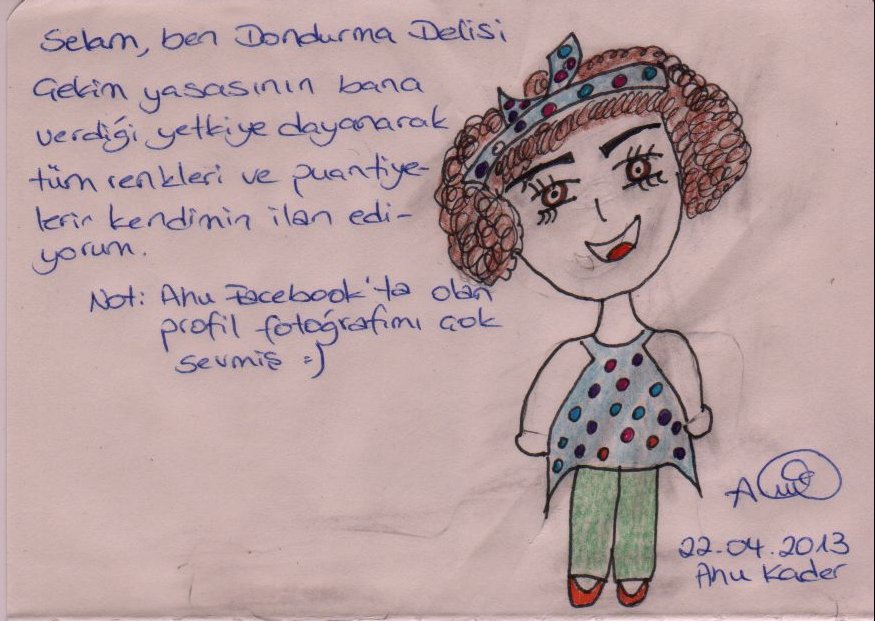 Selam, ben Dondurma Delisi
Çekim yasasının bana
verdiği yetkiye dayanarak
tüm renkleri ve puantiye-
lerin kendimin ilan edi-
yorum.
Not: Ahu Facebook'ta olan
profil fotoğrafımı çok
sevmiş =)
22.04.2013
Ahu Kader